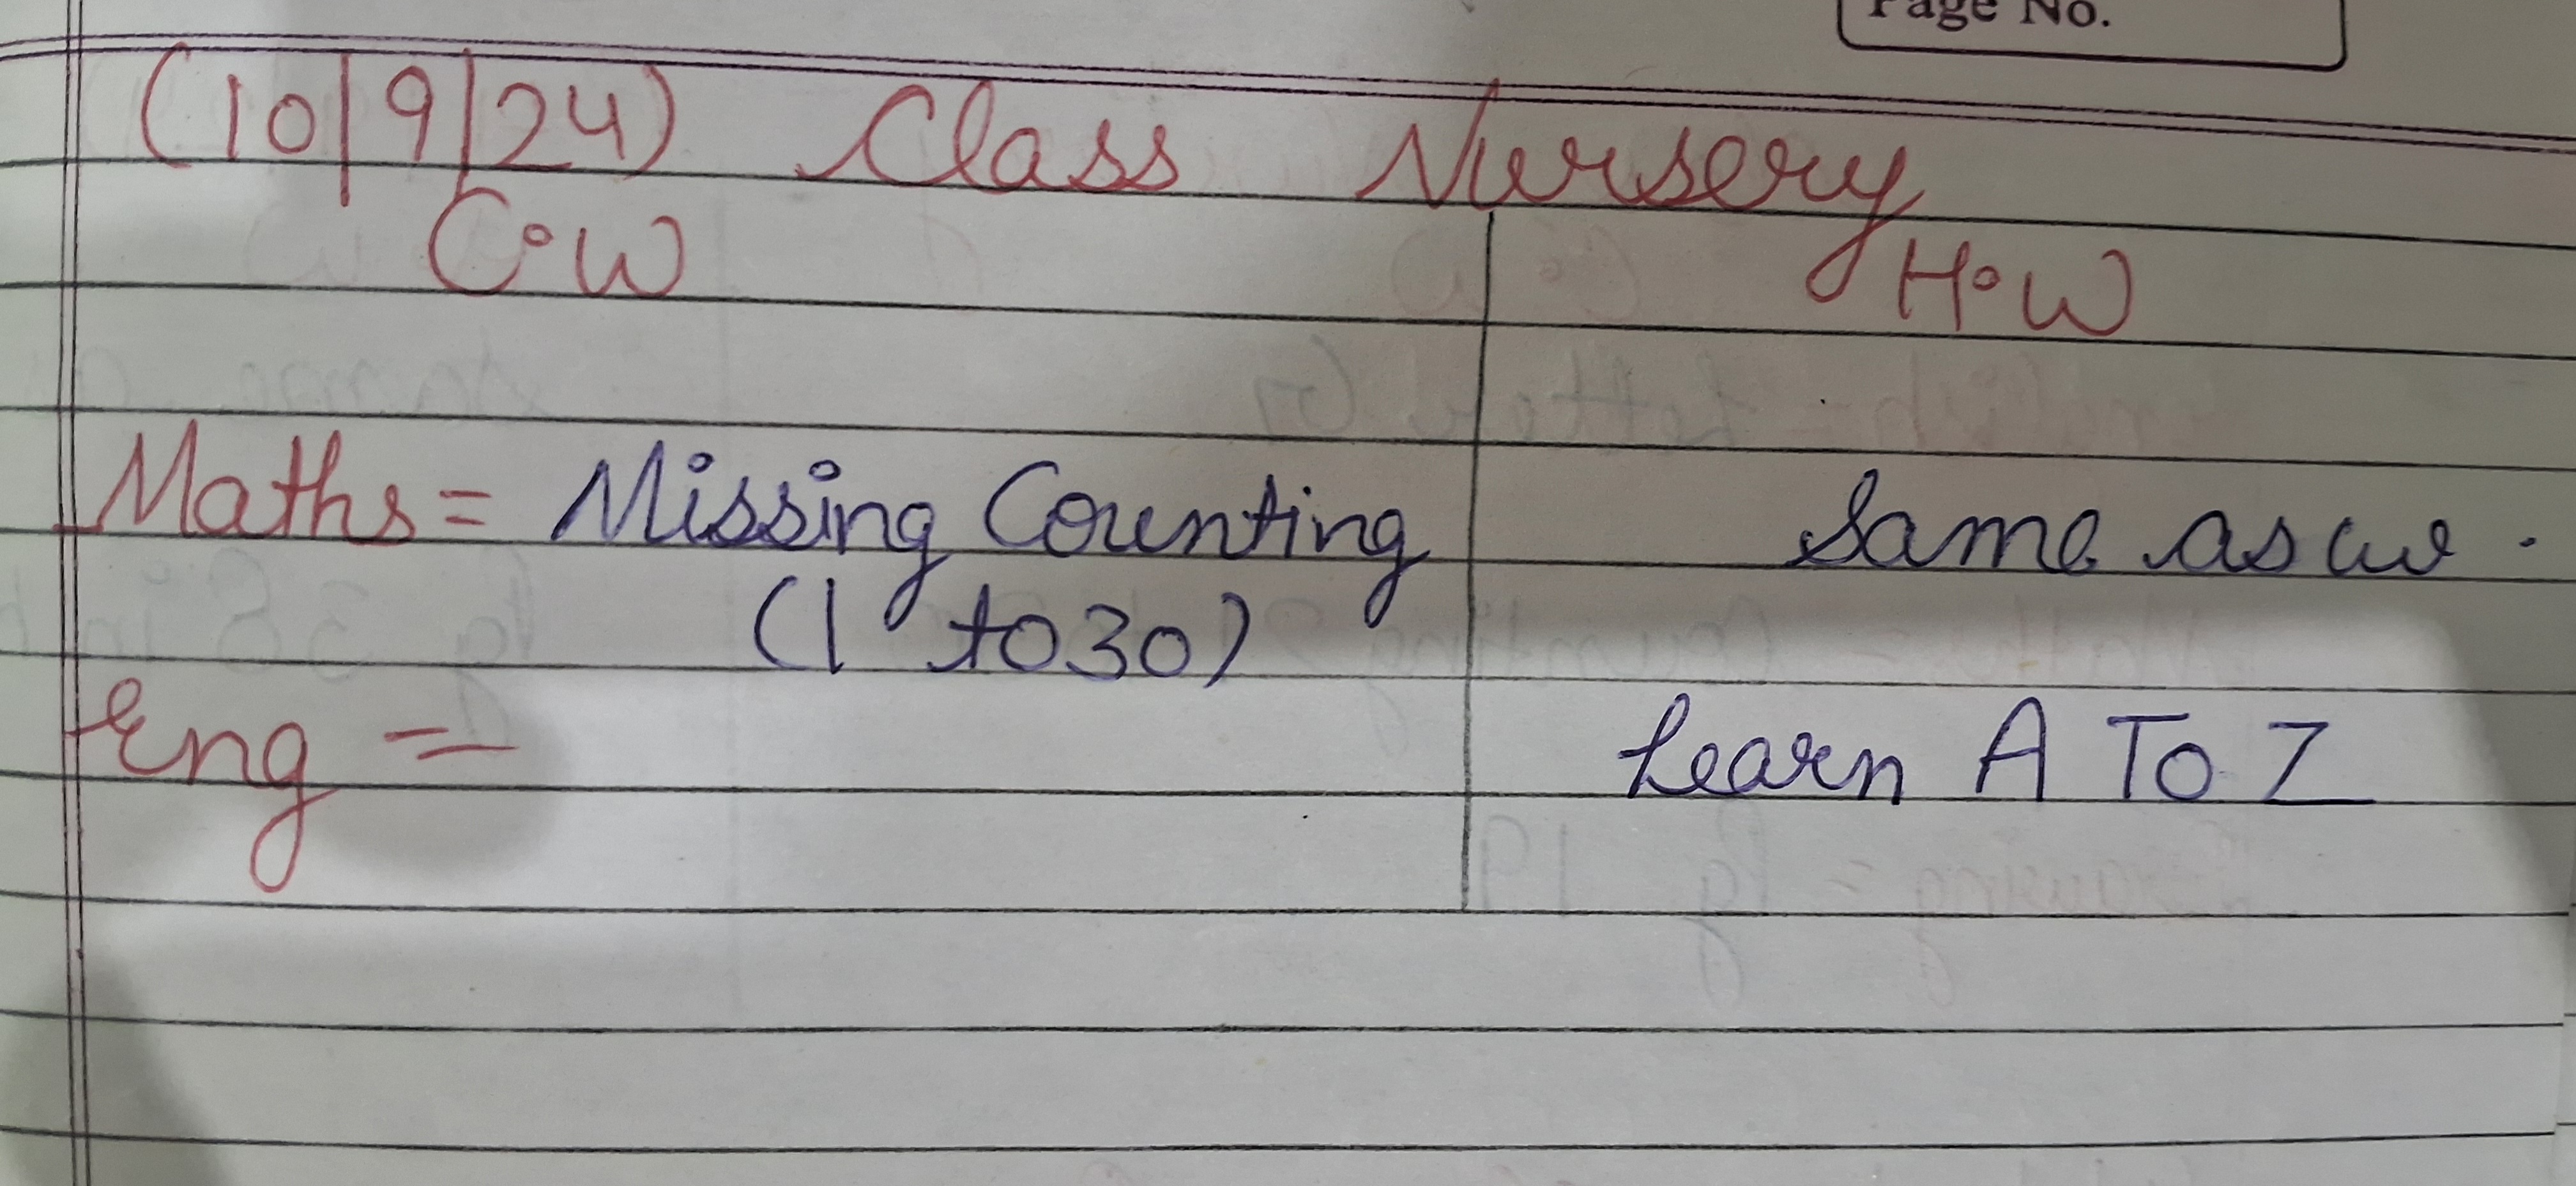 Page No.
(10|9|24) Class Nursery
C.W H.W
Maths = Missing Counting Same as cw.
(1 to 30)
Eng = Learn A To Z